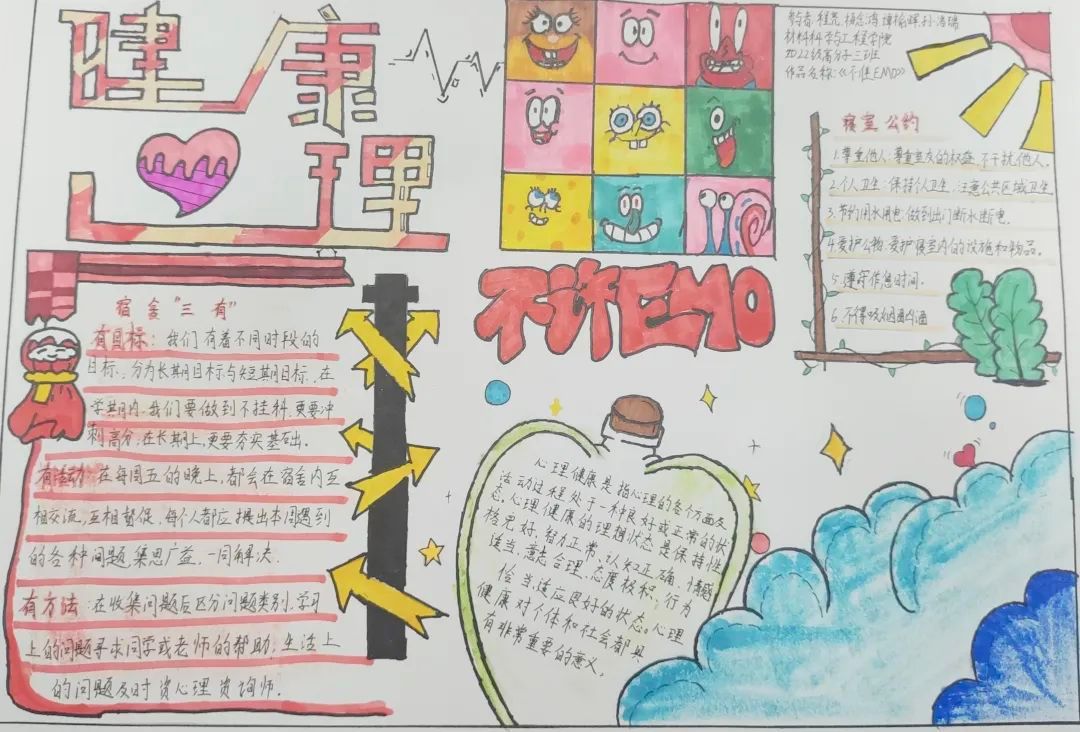 健康
心理
参与者:程亮,杨念鸿,谭榆晖,孙浩瑞
材料科学与工程学院
2022级高分子三班
作品名称:《不准EMO》
寝室公约
1.尊重他人:尊重室友的权益,不干扰他人。
2.个人卫生:保持个人卫生,注意公共区域卫生
3.节约用水用电:做到出门断水断电。
4.爱护公物:爱护寝室内的设施和物品。
5.遵守作息时间。
6.不得吃烟酗酒
不许EMO
宿舍“三有”
有目标:我们有着不同时段的
目标,分为长期目标与短期目标,在
学期内,我们要做到不挂科,更要冲
刺高分;在长期上,更要夯实基础。
有活动:在每周五的晚上,都会在宿舍内互
相交流,互相督促,每个人都应提出本周遇到
的各种问题,集思广益,一同解决.
有方法:在收集问题后区分问题类别,学习
上的问题寻求同学或老师的帮助;生活上
的问题及时资心理资询师.
心理健康是指心理的各个方面及
活动过程处于一种良好或正常的状
态,心理健康的理想状态是保持性
格完好,智力正常,认知正确,情感
适当,意志合理,态度极积,行为
恰当,适应良好的状态。心理
健康对个体和社会都具
有非常重要的意义,